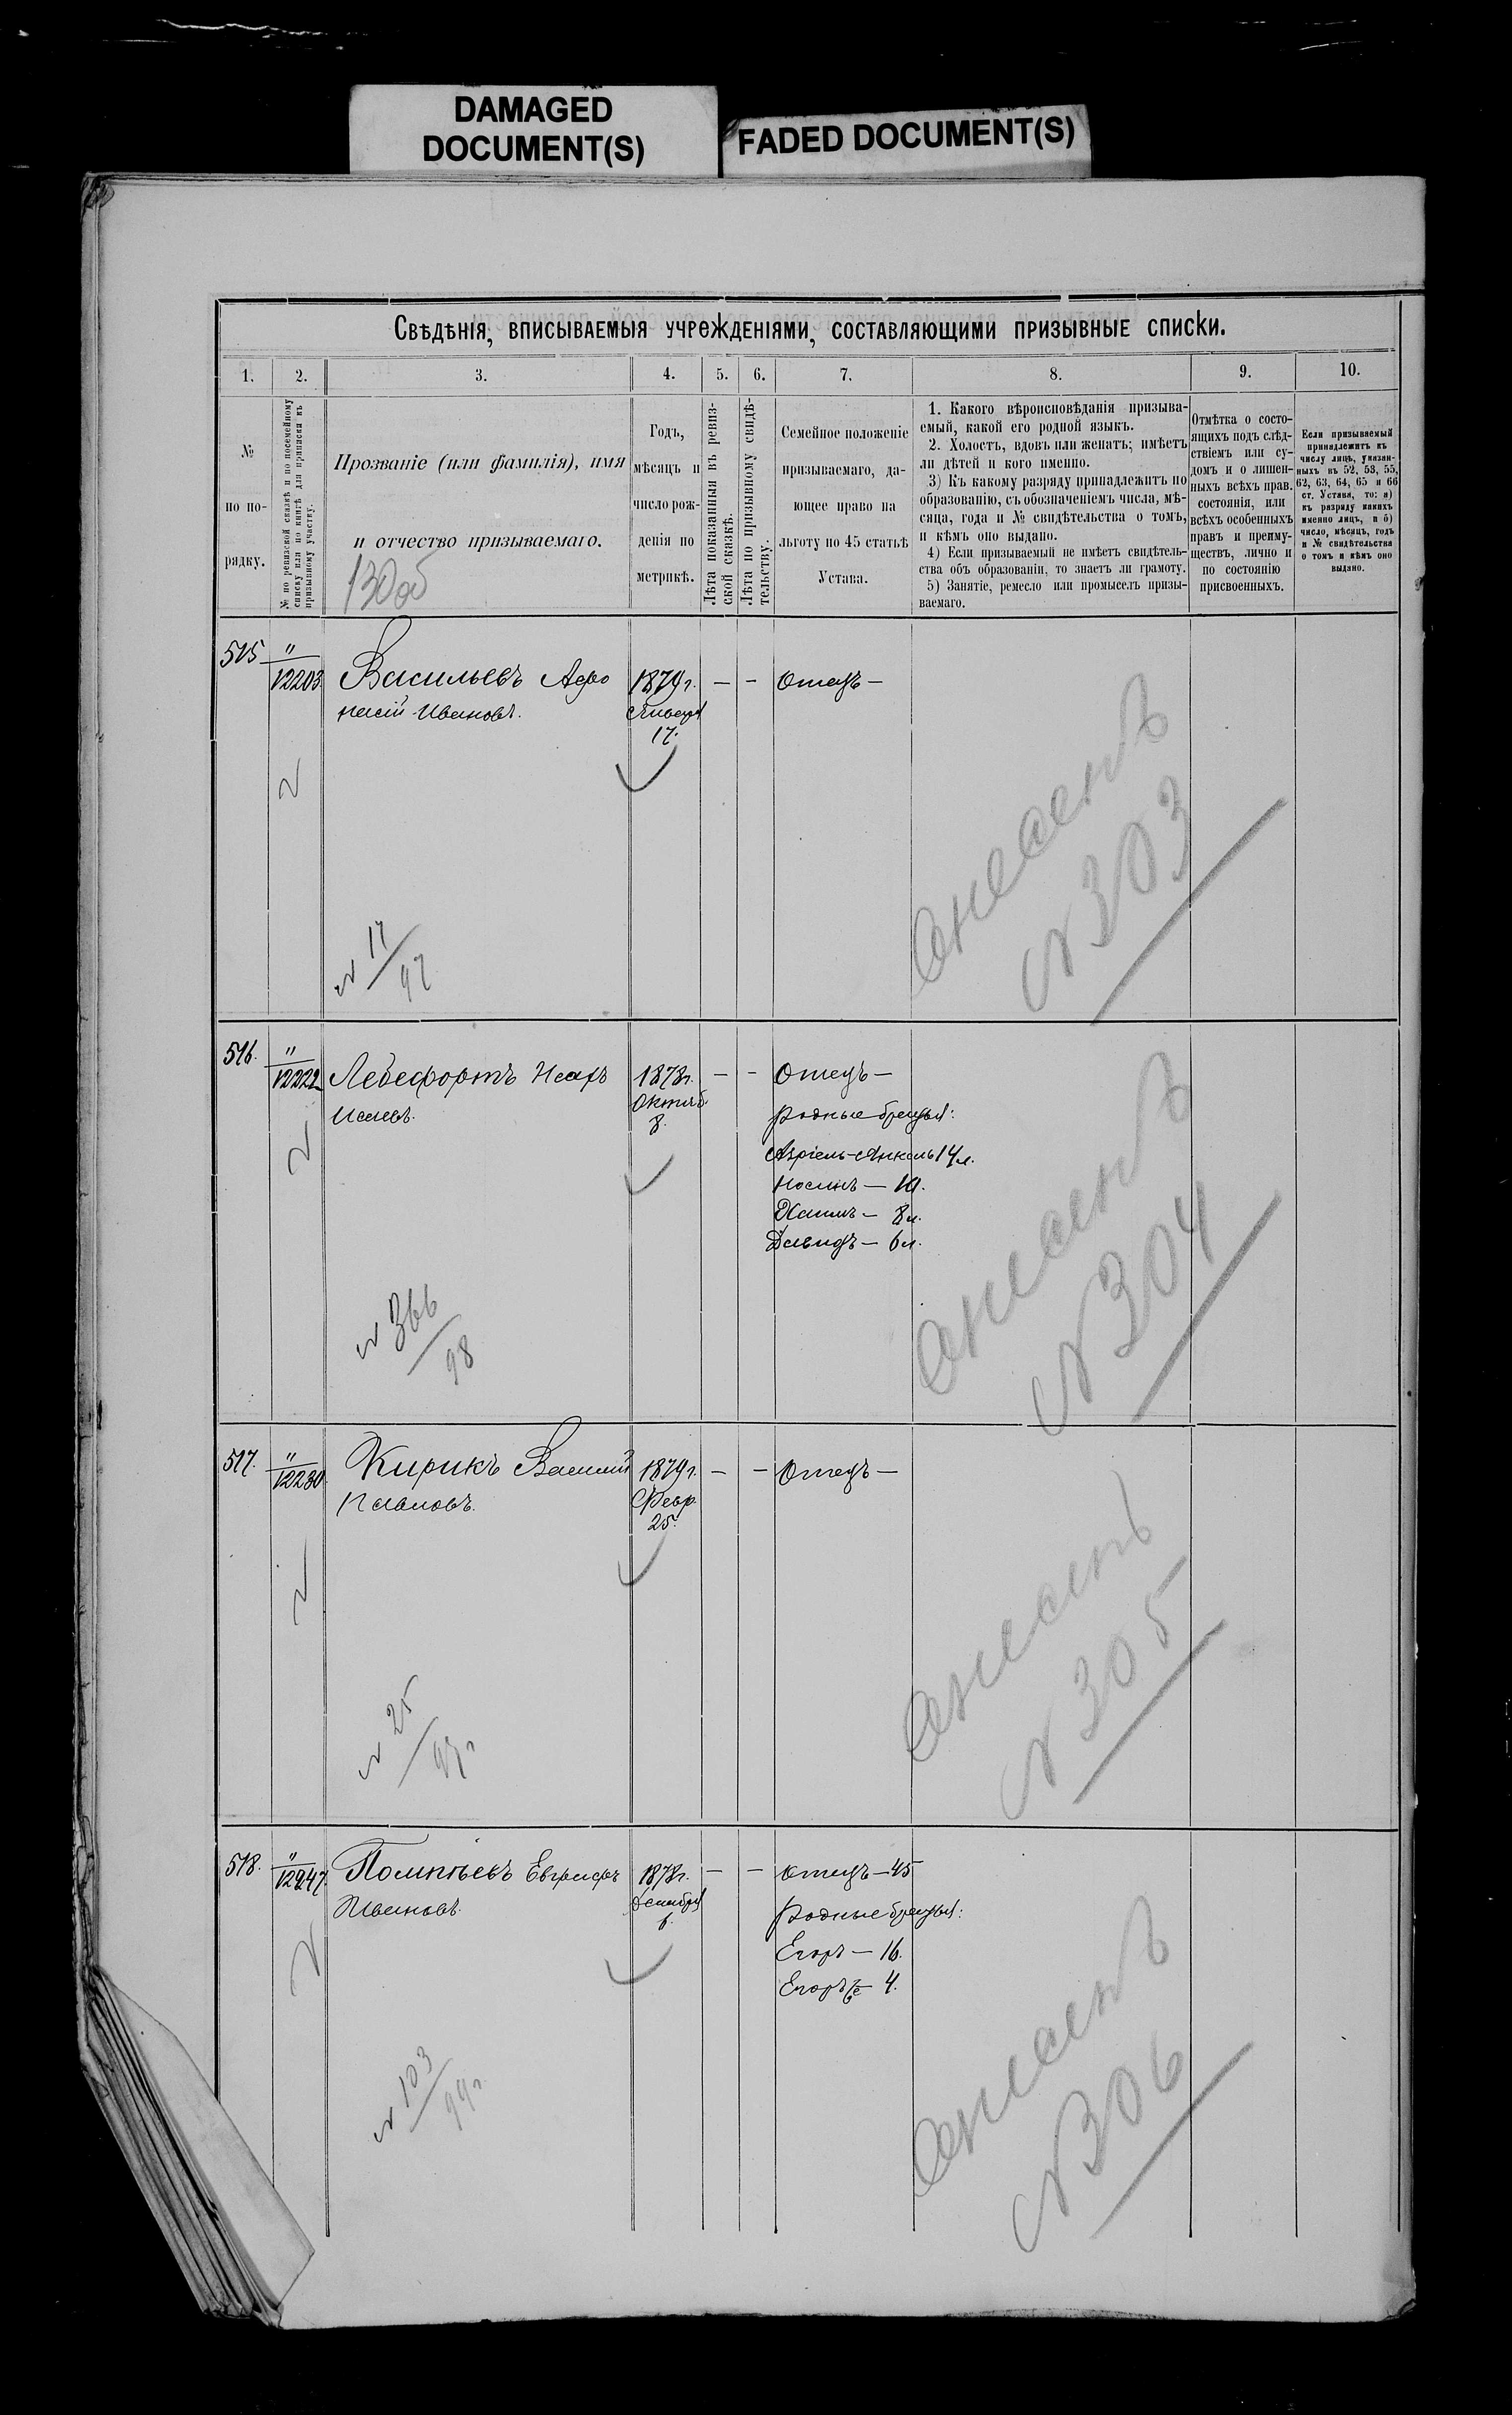 DAMAGED
DOCUMENT(S)
FADED DOCUMENT(S)
Свѣдѣнія, вписываемыя учрежденіями, составляющими призывные списки.
1. 2. 3. 4. 5. 6. 7. 8. 9. 10.
№
по по-
рядку.
№ по ревизской сказкѣ и по посемейному
списку или по книгѣ для приписки къ
призывному участку.
Прозваніе (или фамилія), имя
и отчество призываемаго.
130об
Годъ,
мѣсяцъ и
число рож-
денія по
метрикѣ.
Лѣта показанныя въ ревиз-
ской сказкѣ.
Лѣта по призывному свидѣ-
тельству.
Семейное положеніе
призываемаго, да-
ющее право на
льготу по 45 статьѣ
Устава.
1. Какого вѣроисповѣданія призыва-
емый, какой его родной языкъ.
2. Холостъ, вдовъ или женатъ; имѣетъ
ли дѣтей и кого именно.
3) Къ какому разряду принадлежитъ по
образованію, съ обозначеніемъ числа, мѣ-
сяца, года и № свидѣтельства о томъ,
и кѣмъ оно выдано.
4) Если призываемый не имѣетъ свидѣтель-
ства объ образованіи, то знаетъ ли грамоту.
5) Занятіе, ремесло или промыселъ призы-
ваемаго.
Отмѣтка о состо-
ящихъ подъ слѣд-
ствіемъ или су-
домъ и о лишен-
ныхъ всѣхъ прав.
состоянія, или
всѣхъ особенныхъ
правъ и преиму-
ществъ, лично и
по состоянію
присвоенныхъ.
Если призываемый
принадлежитъ къ
числу лицъ, указан-
ныхъ въ 52, 53, 55,
62, 63, 64, 65 и 66
ст. Устава, то: а)
къ разряду какихъ
именно лицъ, и б)
число, мѣсяцъ, годъ
и № свидѣтельства
о томъ и кѣмъ оно
выдано.
515 " 12203 Васильевъ Афо 1879г. — - Отецъ —
насій Ивановъ. Января
17.
№ 303
N 17/97
516. " 12222 Лебефортъ 1878г. — - Отецъ —
Октяб.
8. Родные братья:
Азріель-Янкель 14л.
Носинъ — 10.
Хаимъ — 8л.
Давидъ — 6л.
№ 304
N 366/98
517. " 12230 Кирикъ Василій 1879г. — — Отецъ —
Павловъ. Февр.
25.
№ 305
N 25/97г
518. " 12247 Евграфъ 1878г. — — Отецъ — 45
Ивановъ. Декабря
6. Родные братья:
Егоръ — 16.
Егоръ 2е 4.
№ 306
N 103/99г